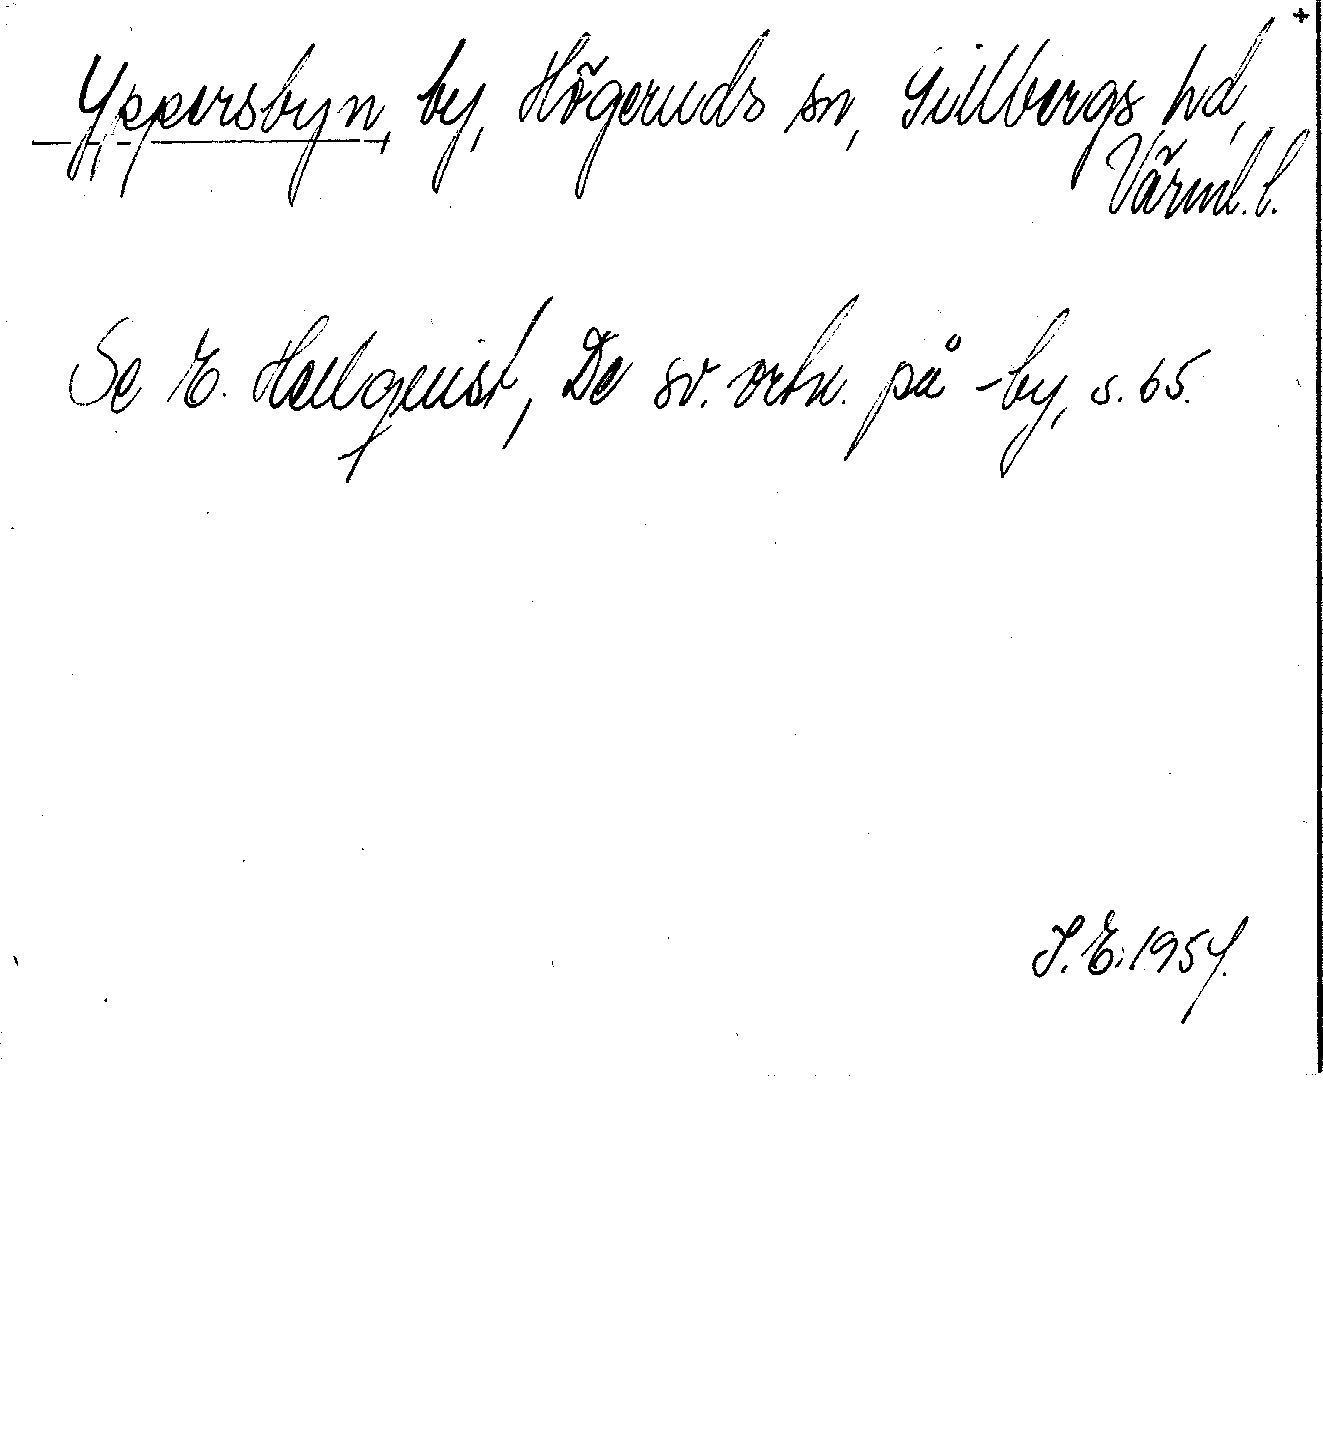 Yppersbyn, by, Högeruds sn, Gillbergs hd,
Värml. l.
Se E. Hellquist, De sv. ortn. på -by, s. 65.
S. E. 1954.